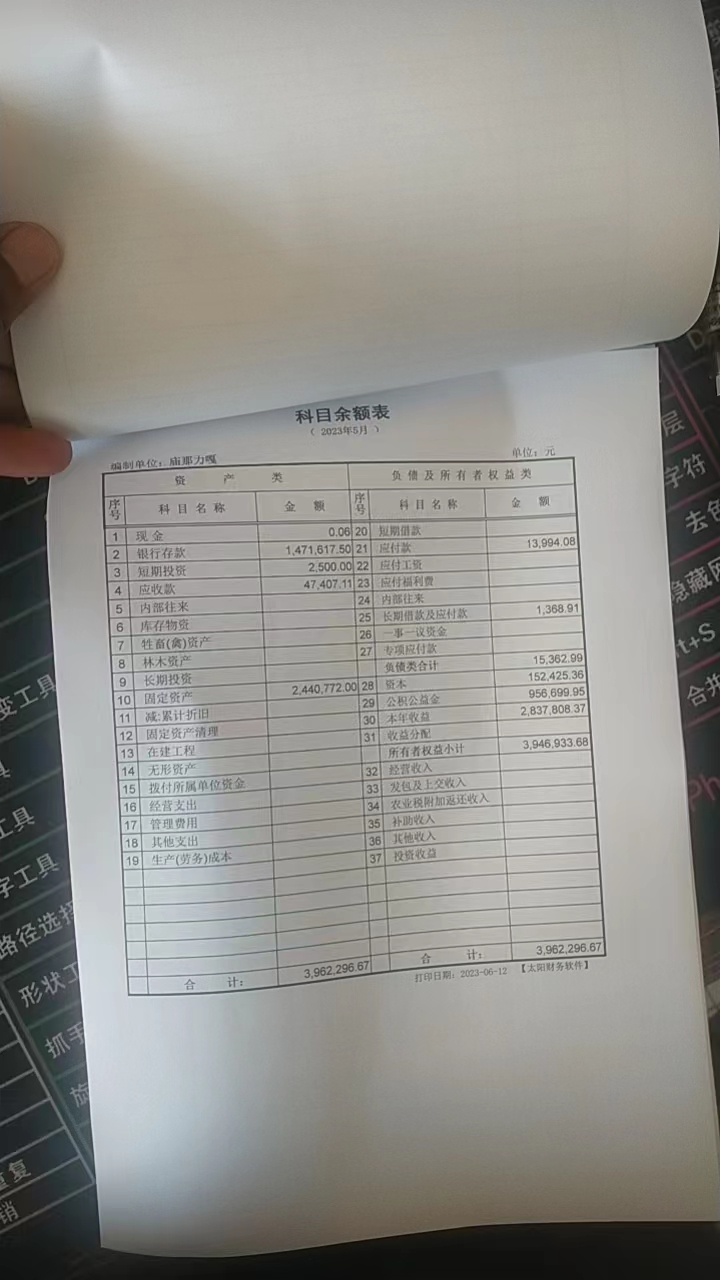 科目余额表
( 2023年5月 )
编制单位：庙那力嘎 单位：元
资 产 类 负债及所有者权益类
序号 科目名称 金 额 序号 科目名称 金 额
1 现金 0.06 20 短期借款
2 银行存款 1,471,617.50 21 应付款 13,994.08
3 短期投资 2,500.00 22 应付工资
4 应收款 47,407.11 23 应付福利费
5 内部往来 24 内部往来
6 库存物资 25 长期借款及应付款 1,368.91
7 牲畜(禽)资产 26 一事一议资金
8 林木资产 27 专项应付款
9 长期投资 负债类合计 15,362.99
10 固定资产 2,440,772.00 28 资本 152,425.36
11 减:累计折旧 29 公积公益金 956,699.95
12 固定资产清理 30 本年收益 2,837,808.37
13 在建工程 31 收益分配
14 无形资产 所有者权益小计 3,946,933.68
15 拨付所属单位资金 32 经营收入
16 经营支出 33 发包及上交收入
17 管理费用 34 农业税附加返还收入
18 其他支出 35 补助收入
19 生产(劳务)成本 36 其他收入
37 投资收益
合 计： 3,962,296.67 合 计： 3,962,296.67
打印日期：2023-06-12 【太阳财务软件】
层
字符
去色
隐藏网
t+S
合并
Ph
变工具
具
工具
字工具
路径选择
形状工
抓手
旋
重复
销